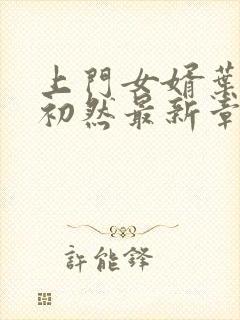 上門女婿葉
初然最新章
許能鋒